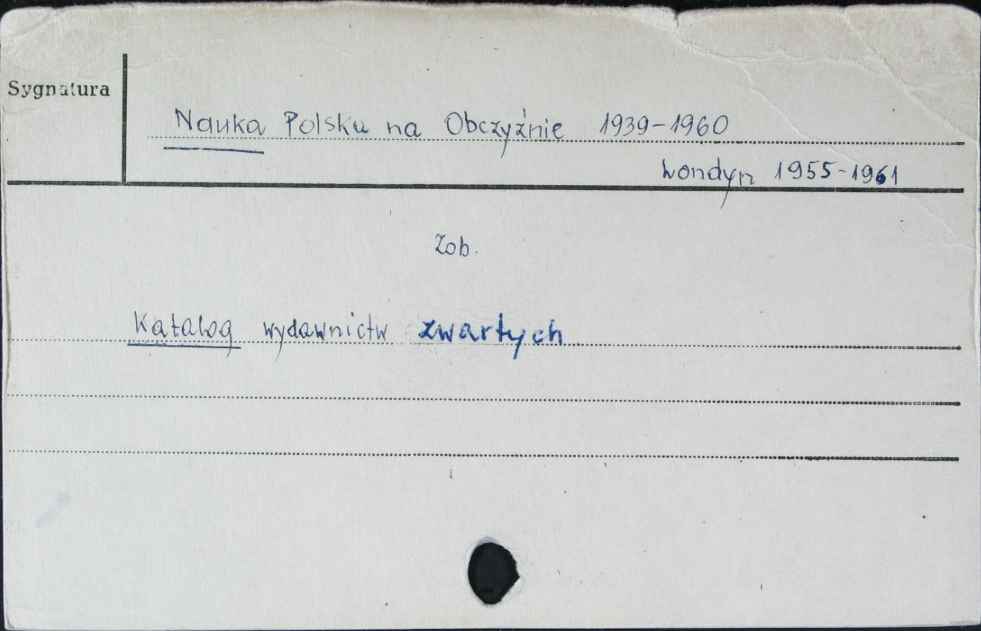 Sygnatura
Nauka Polska na Obczyźnie 1939-1960
Londyn 1955-1961
Zob.
Katalog wydawnictw zwartych